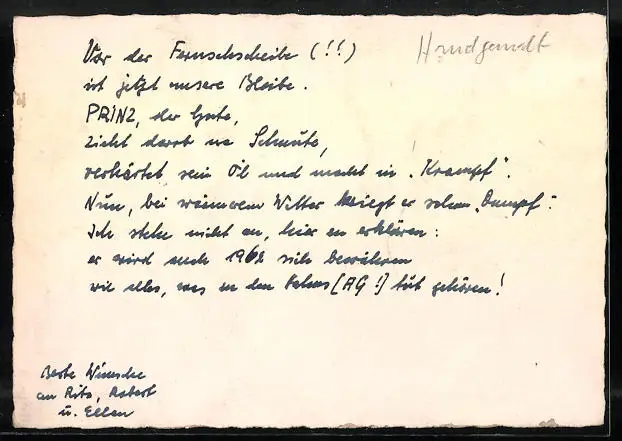 Vor der Fernsehscheibe (!!)
ist jetzt unsere Bleibe.
PRINZ, der Gute,
zieht darob ne Schnute,
verhärtet sein Öl und macht in „Krampf".
Nun, bei wärmerem Wetter kriegt er schon „Dampf".
Ich stehe nicht an, hier zu erklären:
er wird auch 1962 sich bewähren
wie alles, was zu den [AG!] tut gehören!
Handgemalt
Beste Wünsche
an Rita, Robert
u. Ellen